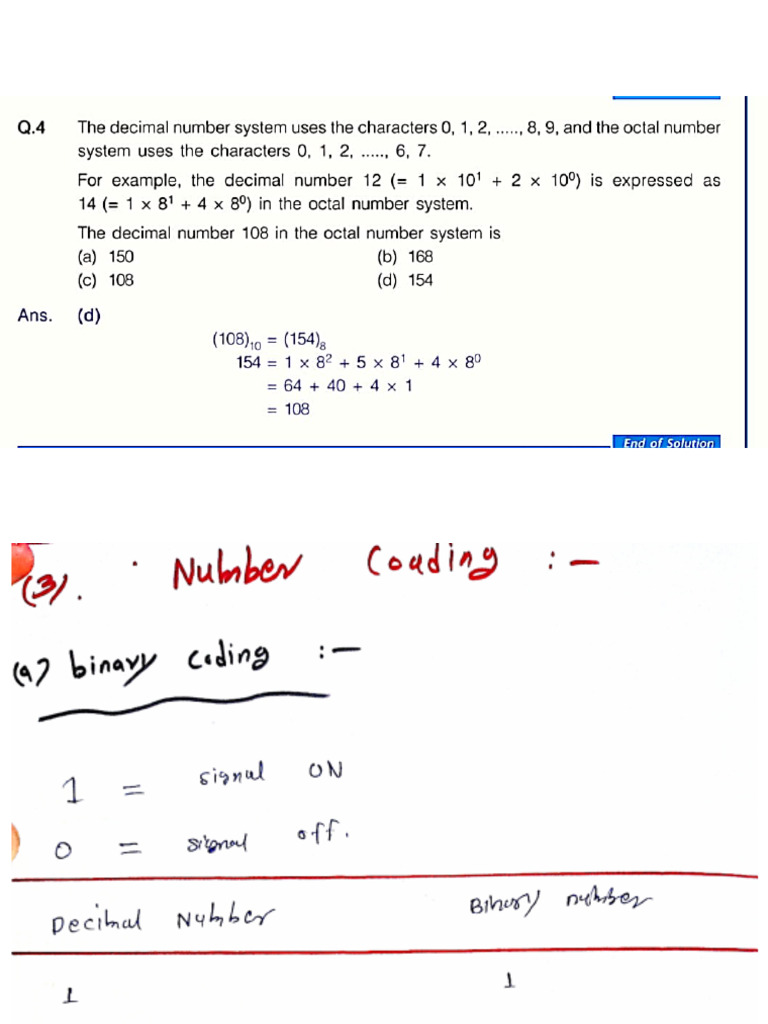 Q.4 The decimal number system uses the characters 0, 1, 2, ....., 8, 9, and the octal number
system uses the characters 0, 1, 2, ....., 6, 7.
For example, the decimal number 12 (= 1 × 10¹ + 2 × 10⁰) is expressed as
14 (= 1 × 8¹ + 4 × 8⁰) in the octal number system.
The decimal number 108 in the octal number system is
(a) 150 (b) 168
(c) 108 (d) 154
Ans. (d)
(108)₁₀ = (154)₈
154 = 1 × 8² + 5 × 8¹ + 4 × 8⁰
= 64 + 40 + 4 × 1
= 108
End of Solution
(3). Number Coading :-
(a) binary coding :-
1 = signal ON
0 = signal off.
Decimal Number Binary number
1 1